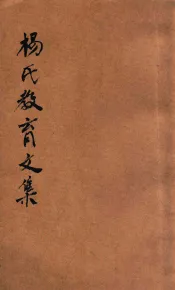 杨氏教育文集